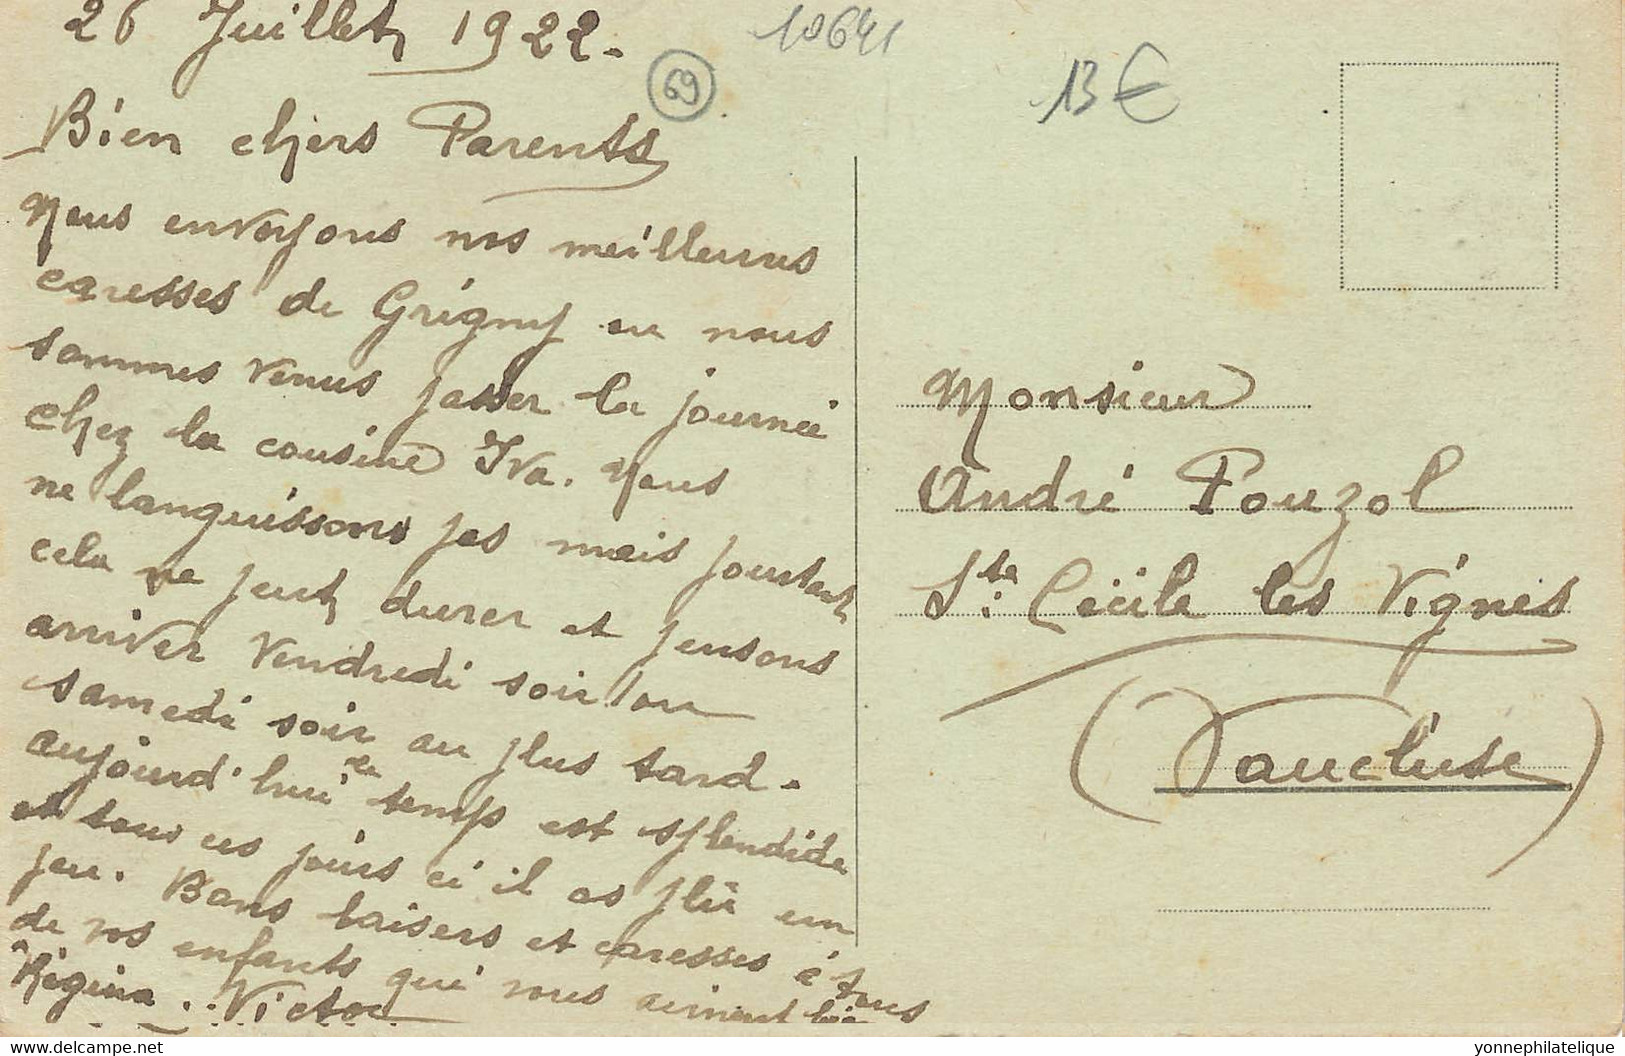 26 Juillet 1922.
10641
69
13 €
Bien chers Parents
Nous envoyons nos meilleures
caresses de Grigny ou nous
sommes venus passer la journée
chez la cousine Iva. Nous
ne languissons pas mais pourtant
cela ne peut durer et pensons
arriver Vendredi soir ou
samedi soir au plus tard.
aujourd'hui le temps est splendide
et tous ces jours ci il as plu un
peu. Bons baisers et caresses à tous
de vos enfants qui vous aiment bien
Régina. Victor
Monsieur
André Pouzol
Ste. Cécile les Vignes
(Vaucluse)
delcampe.net
yonnephilatelique